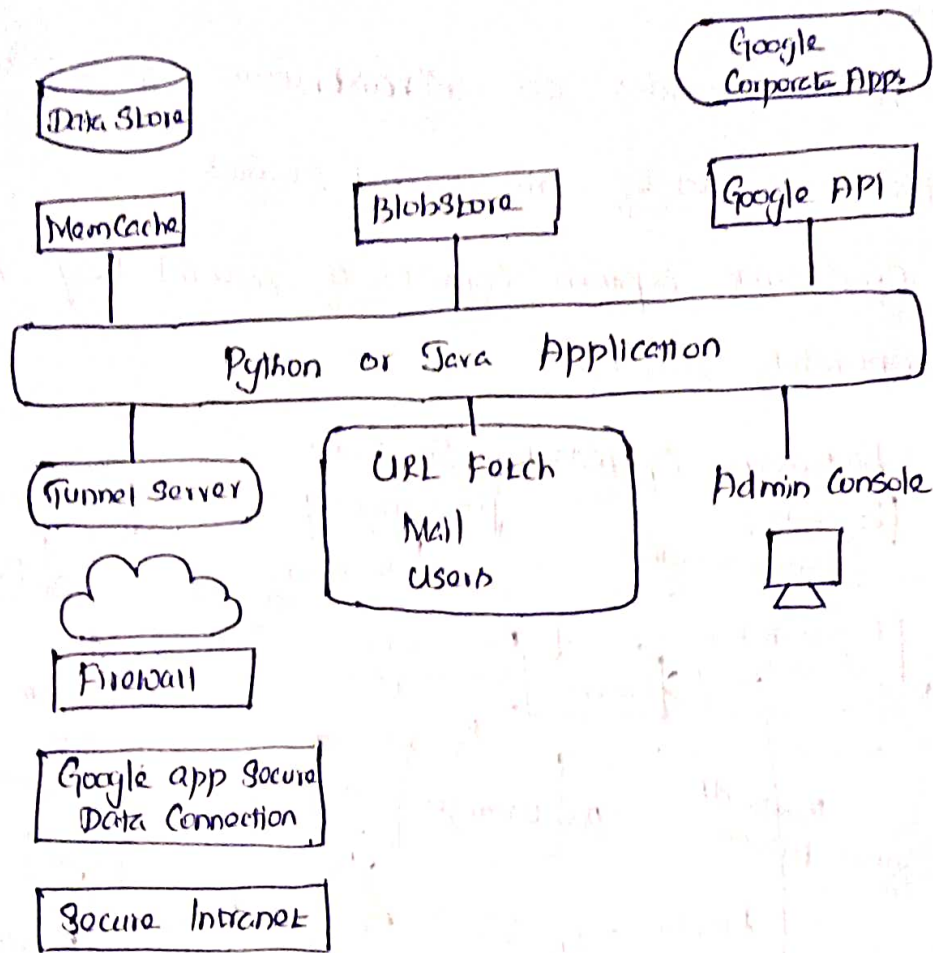 Google
Corporate Apps
Data Store
MemCache
BlobStore
Google API
Python or Java Application
Tunnel Server
URL Fetch
Mail
Users
Admin Console
Firewall
Google app Secure
Data Connection
Secure Intranet